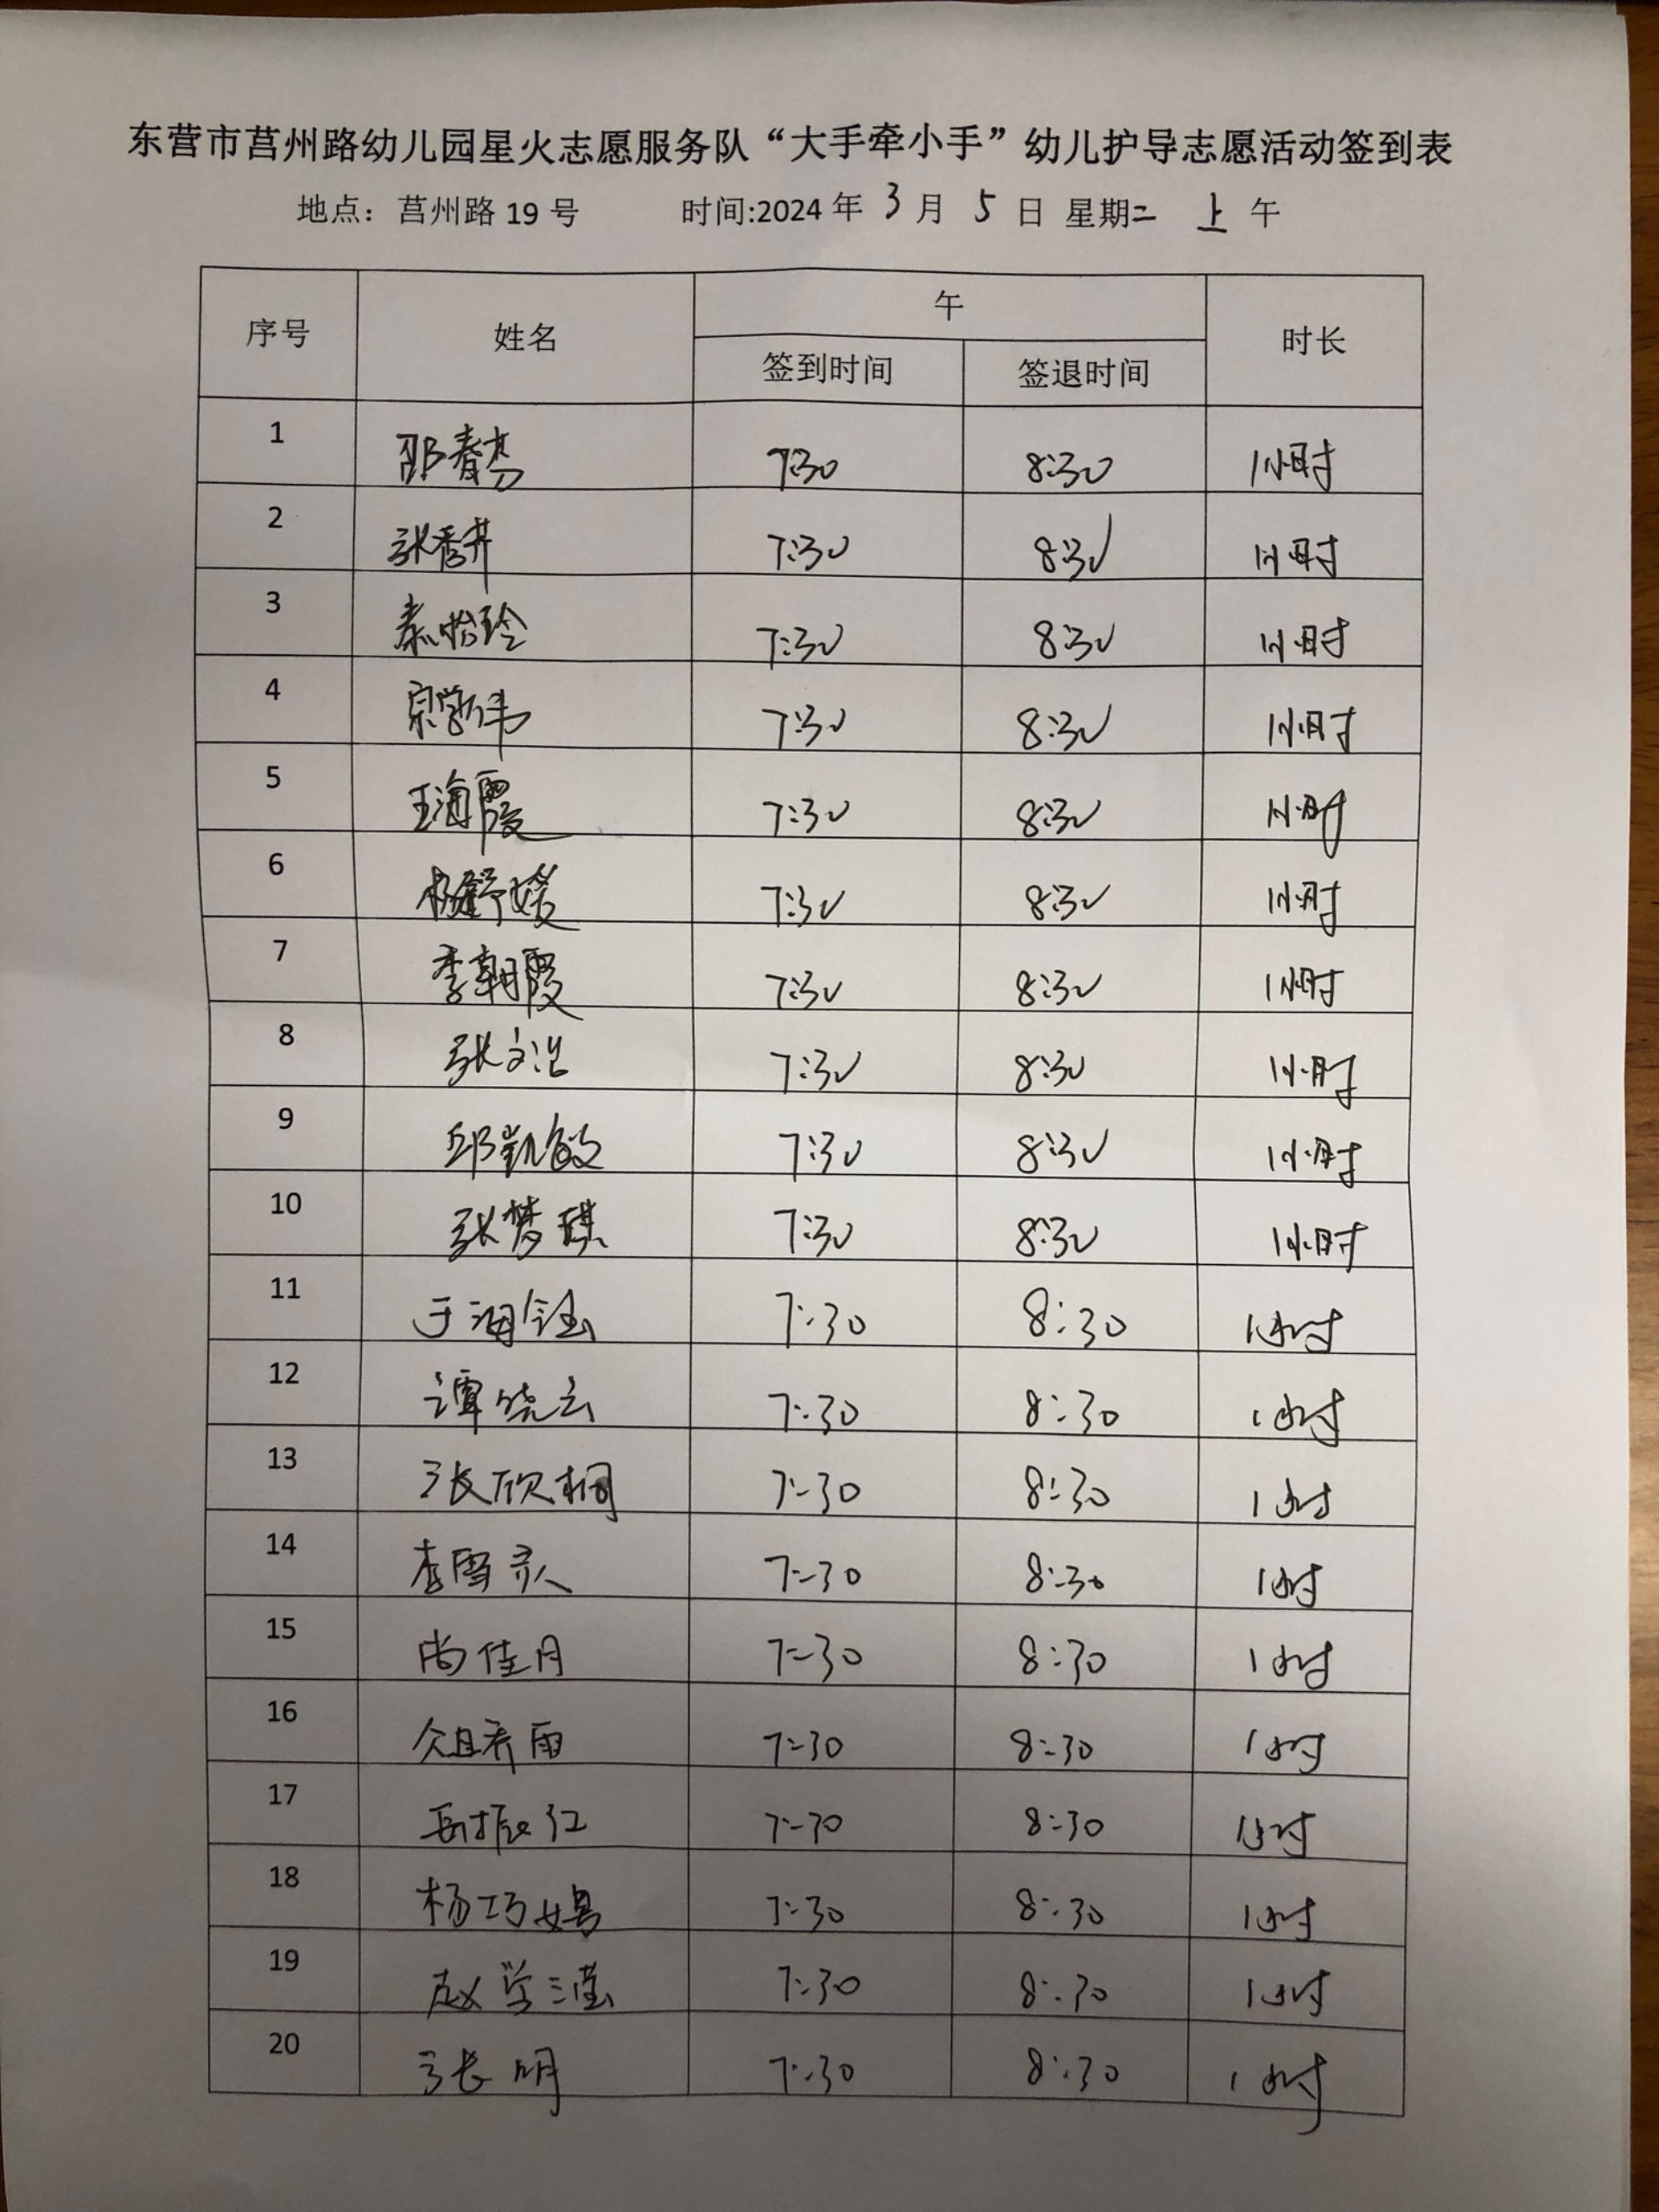 东营市莒州路幼儿园星火志愿服务队“大手牵小手”幼儿护导志愿活动签到表
地点：莒州路 19 号 时间:2024 年 3 月 5 日 星期二 上 午
序号 姓名 午 时长
签到时间 签退时间
1 邵春 7:30 8:30 1小时
2 张秀井 7:30 8:30 1小时
3 秦怡玲 7:30 8:30 1小时
4 宗学伟 7:30 8:30 1小时
5 王海霞 7:30 8:30 1小时
6 杨舒媛 7:30 8:30 1小时
7 李朝霞 7:30 8:30 1小时
8 张文洁 7:30 8:30 1小时
9 邱凯敏 7:30 8:30 1小时
10 张梦琪 7:30 8:30 1小时
11 于海钰 7:30 8:30 1小时
12 谭晓云 7:30 8:30 1小时
13 张欣桐 7:30 8:30 1小时
14 李雪灵 7:30 8:30 1小时
15 尚佳月 7:30 8:30 1小时
16 雨 7:30 8:30 1小时
17 岳振红 7:30 8:30 1小时
18 杨巧娟 7:30 8:30 1小时
19 赵学滢 7:30 8:30 1小时
20 张明 7:30 8:30 1小时